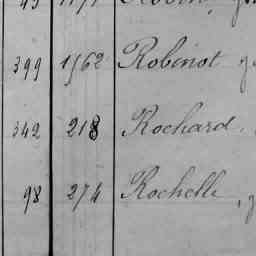 399 1562 Robinot
342 218 Rochard,
98 274 Rochelle,